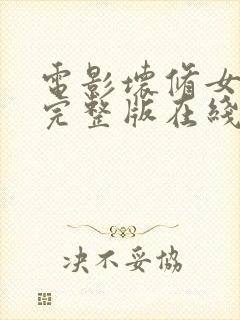 電影壞脩女
完整版在綫
决不妥協